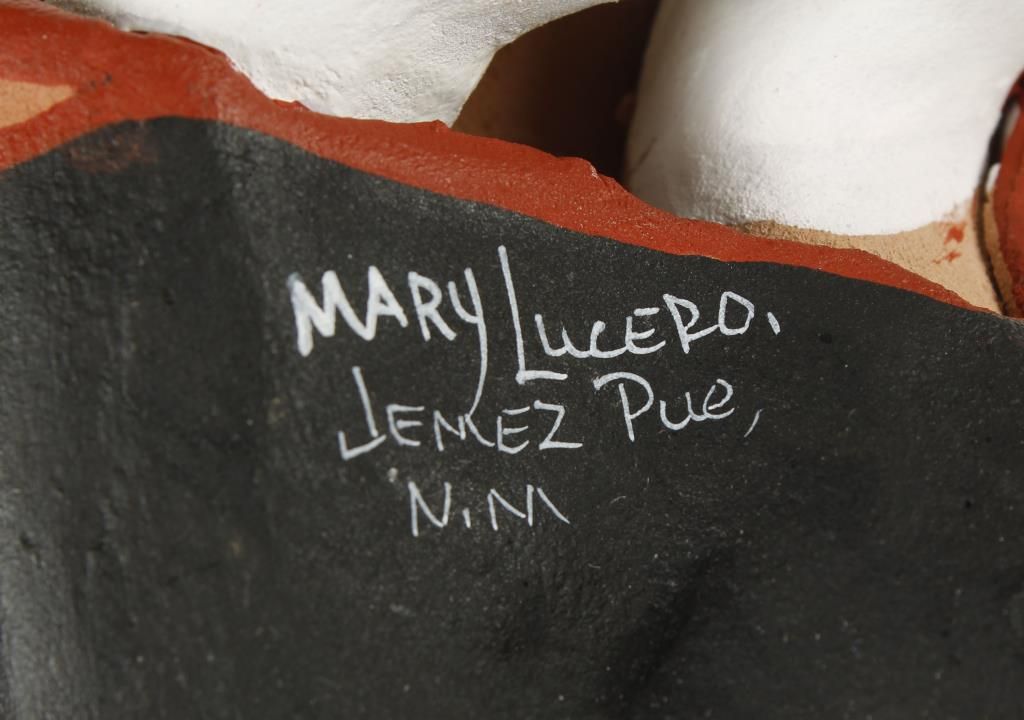 MARY LUCERO.
JEMEZ PUE,
N.M